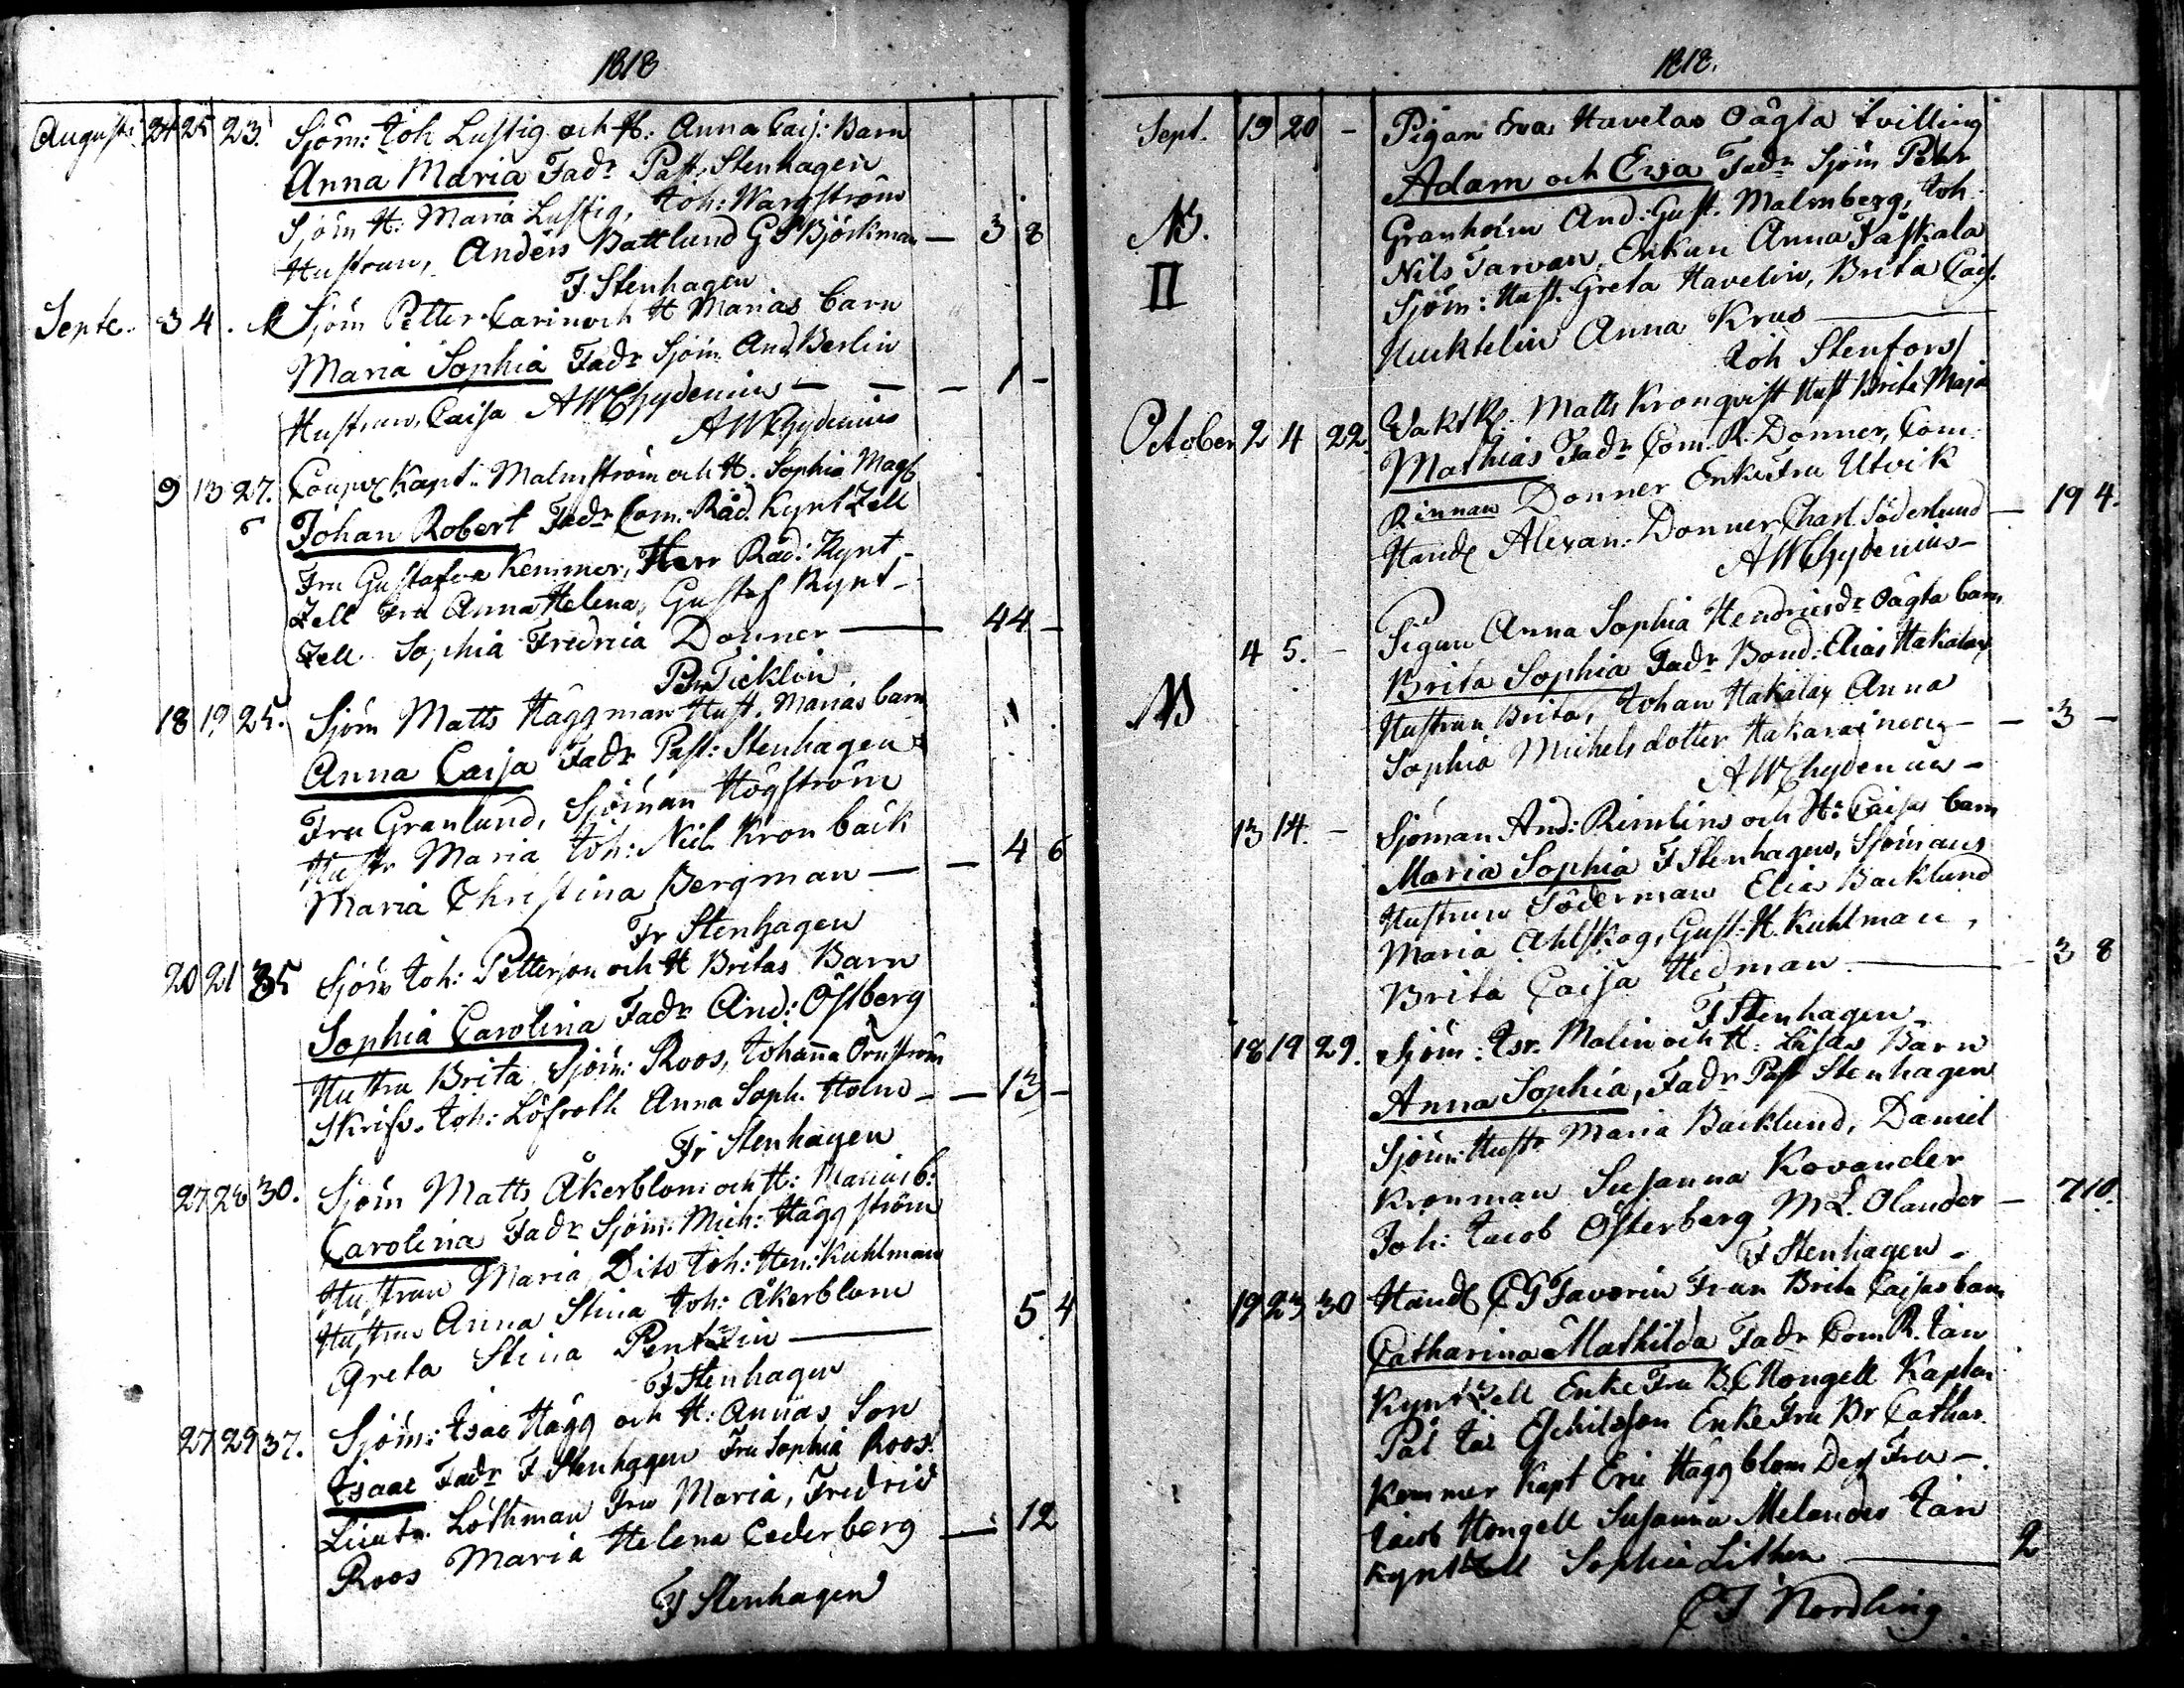 1818
Augusti. 24 25 23. Sjöm: Joh Lustig och H: Anna Cais: Barn
Anna Maria Fadr Past. Stenhagen
Sjöm H: Maria Lustig, Joh: Wargström
Hustrun, Anders Battlund G S Björkman — 3 8
F. Stenhagen
Septe. 3 4. Sjöm Petter Carin och H Marias barn
Maria Sophia Fadr Sjöm And Berlin
Hustrun, Caisa AWChydenius — — — 1 —
AWChydenius
9 13 27. Coup Kapt: Malmström och H: Sophia Mag
6 Johan Robert Fadr Com: Råd. Kyntzell
Fru Gustafva Kemmer, Herr Råd: Kynt-
zell Fru Anna Helena, Gustaf Kynt-
zell Sophia Fredrica Donner — 44 —
Ticklin
18 19 25. Sjöm Matts Häggman Hust. Marias barn
Anna Caisa Fadr Past: Stenhagen
Fru Granlund, Sjöman Högström
Hustr Maria Joh: Nic. Kronbäck
Maria Christina Bergman — — 4 6
Fr Stenhagen
20 21 35 Sjöm Joh: Petterson och H Britas Barn
Sophia Carolina Fadr And: Östberg
Hustru Brita Sjöm: Roos, Johanna Örnström
Skrifv. Joh: Löfroth Anna Soph. Holm — — 13 —
Fr Stenhagen
27 28 30. Sjöm Matts Åkerblom och H: Marias b:
Carolina Fadr Sjöm: Mich: Häggström
Hustrun Maria, Dito Joh: Hen: Kuhlman
Hustrun Anna Stina Joh: Åkerblom
Greta Stina Pentzin — 5 4
F Stenhagen
27 29 37. Sjöm: Isac Hägg och H: Annas Son
Isaac Fadr F Stenhagen Fru Sophia Roos
Lieutn. Löthman Fru Maria, Fredric
Roos Maria Helena Cederberg — 12
F Stenhagen
1818.
Sept. 19 20 — Pigan Eva Havelas Oägta tvilling
Adam och Ewa Fadr Sjöm Petter
NB. Granholm And: Gust. Malmberg, Joh
Nils Tarvan, Enkan Anna Påskala
II Sjöm: Hust. Greta Havelin, Brita Cais.
Hucklin Anna Krus —
Joh Stenfors
October 2 4 22. VaktK. Matts Kronqvist Hust Brita Maja
Mathias Fadr Com. R. Donner, Com:
Rinnan Donner Enkefru Utvik
Handl Alexan: Donner Charl. Söderlund — 19 4.
AWChydenius —
4 5. — Pigan Anna Sophia Hendricsdr Oägta barn
Brita Sophia Fadr Bond: Elias Hakalax
NB Hustrun Brita, Johan Hakalax Anna
Sophia Michelsdotter Hakarainen — — 3 —
AWChydenius —
13 14. — Sjöman And: Rimlins och H: Caisas barn
Maria Sophia F Stenhagen, Sjömans
Hustrun Söderman Elias Backlund
Maria Ahlskog, Gust: H. Kuhlman,
Brita Caisa Hedman — — 3 8
F Stenhagen
18 19 29. Sjöm: Isr. Malin och H: Lisas Barn
Anna Sophia, Fadr Past Stenhagen
Sjöm: Hustr Maria Backlund, Daniel
Kronman Susanna Kovander
Joh: Jacob Österberg M L. Olander — 7 10.
F Stenhagen —
19 23 30 Handl C G Favorin Frun Brita Caisas barn
Catharina Mathilda Fadr Com R. Jan
Kyntzell Enke Fru B. C Hongell Kaplan
Pal Jac Eschilsson Enke Fru Br Cathar.
Kemmer Kapt Eric Häggblom Des Fru —
Jacob Hongell Susanna Melander Jan
Kyntzell Sophia Lithen — 2
C J Nordling